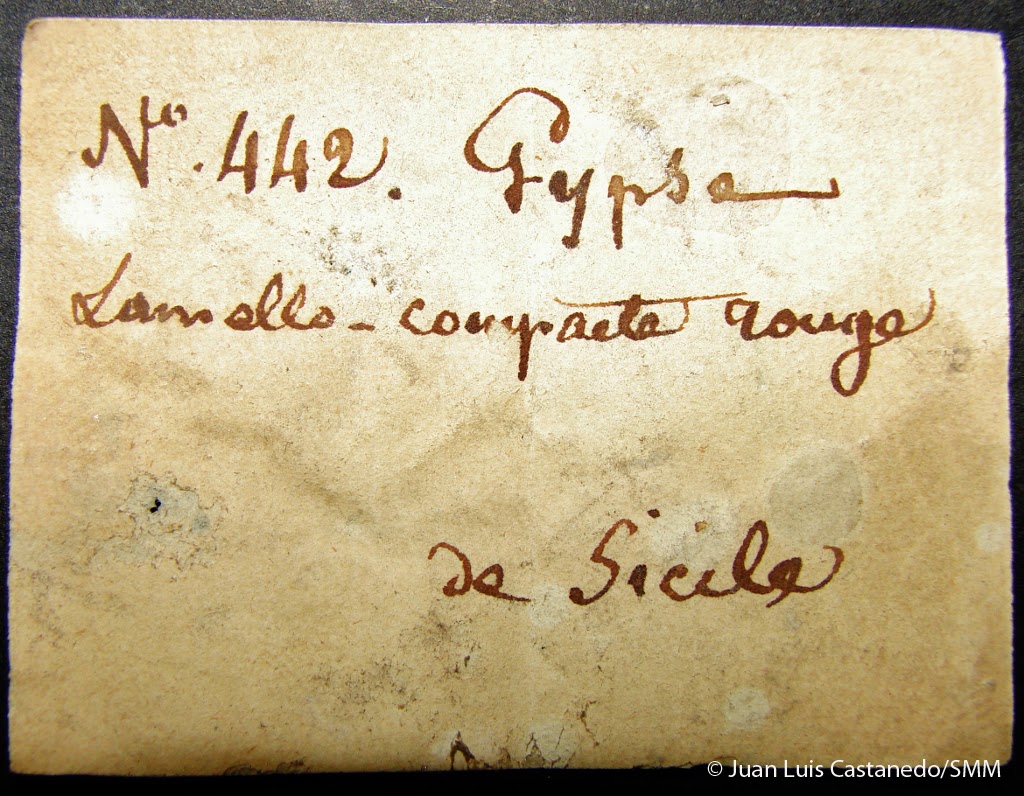 Nº. 442. Gypse
Lamello-compacte rouge
de Sicile
© Juan Luis Castanedo/SMM